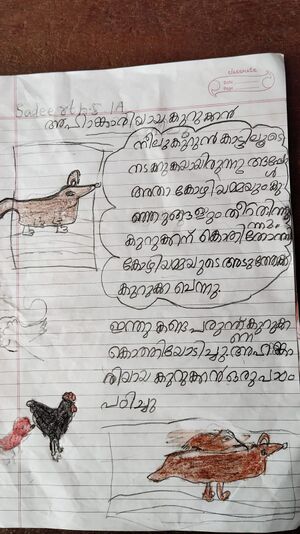 classmate
Date
Page
Sadeerth.S 1A
അഹങ്കാരിയായ കുറുക്കൻ
നീലുകുറുൻ കാട്ടിലൂടെ
നടക്കുകയായിരുന്നു അപ്പോൾ
അതാ കോഴിയമ്മയും കു
ഞ്ഞുങ്ങളും തീറ്റതിന്നു
ന്നതും
കുറുക്കന് കൊതിതോന്നി
കോഴിയമ്മയുടെ അടുത്തേക്ക്
കുറുക്ക ചെന്നു.
ഇന്തു കണ്ട പരുന്ത് കുറുക്ക
ണെ
കൊത്തിയോടിച്ചു. അഹങ്കാ
രിയായ കുറുക്കൻ ഒരു പാഠം
പഠിച്ചു